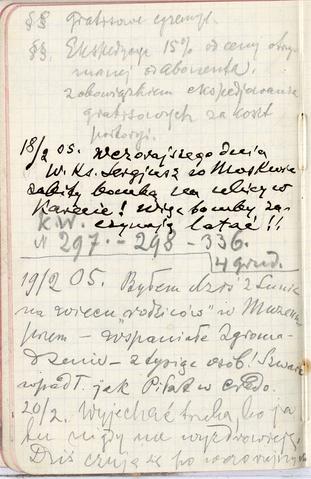 §§ Gratisowe egzempl.
§§. Ekspedycya 15% od ceny otrzy
manej od abonenta.
z obowiązkiem ekspedjowania
gratisowych za koszt
portoryi.
18/2 05. wczorajszego dnia
W. Ks. Sergiusz w Moskwie
zabity bombą na ulicy w
karecie! więc bomby za-
czynają latać!!
K.W.
N 297. - 298 - 336.
4 grud.
19/2 05. Byłem dziś z
na wiecu "rodziców" w Muzeum
przem - wspaniałe zgroma-
dzenie - z tysiąc osób. Szwarc
wpadł. jak Piłat w credo.
20/2. Wyjechać trzeba, bo ja
tu nigdy nie wyzdrowieję.
Dziś czuję się po wczorajszym